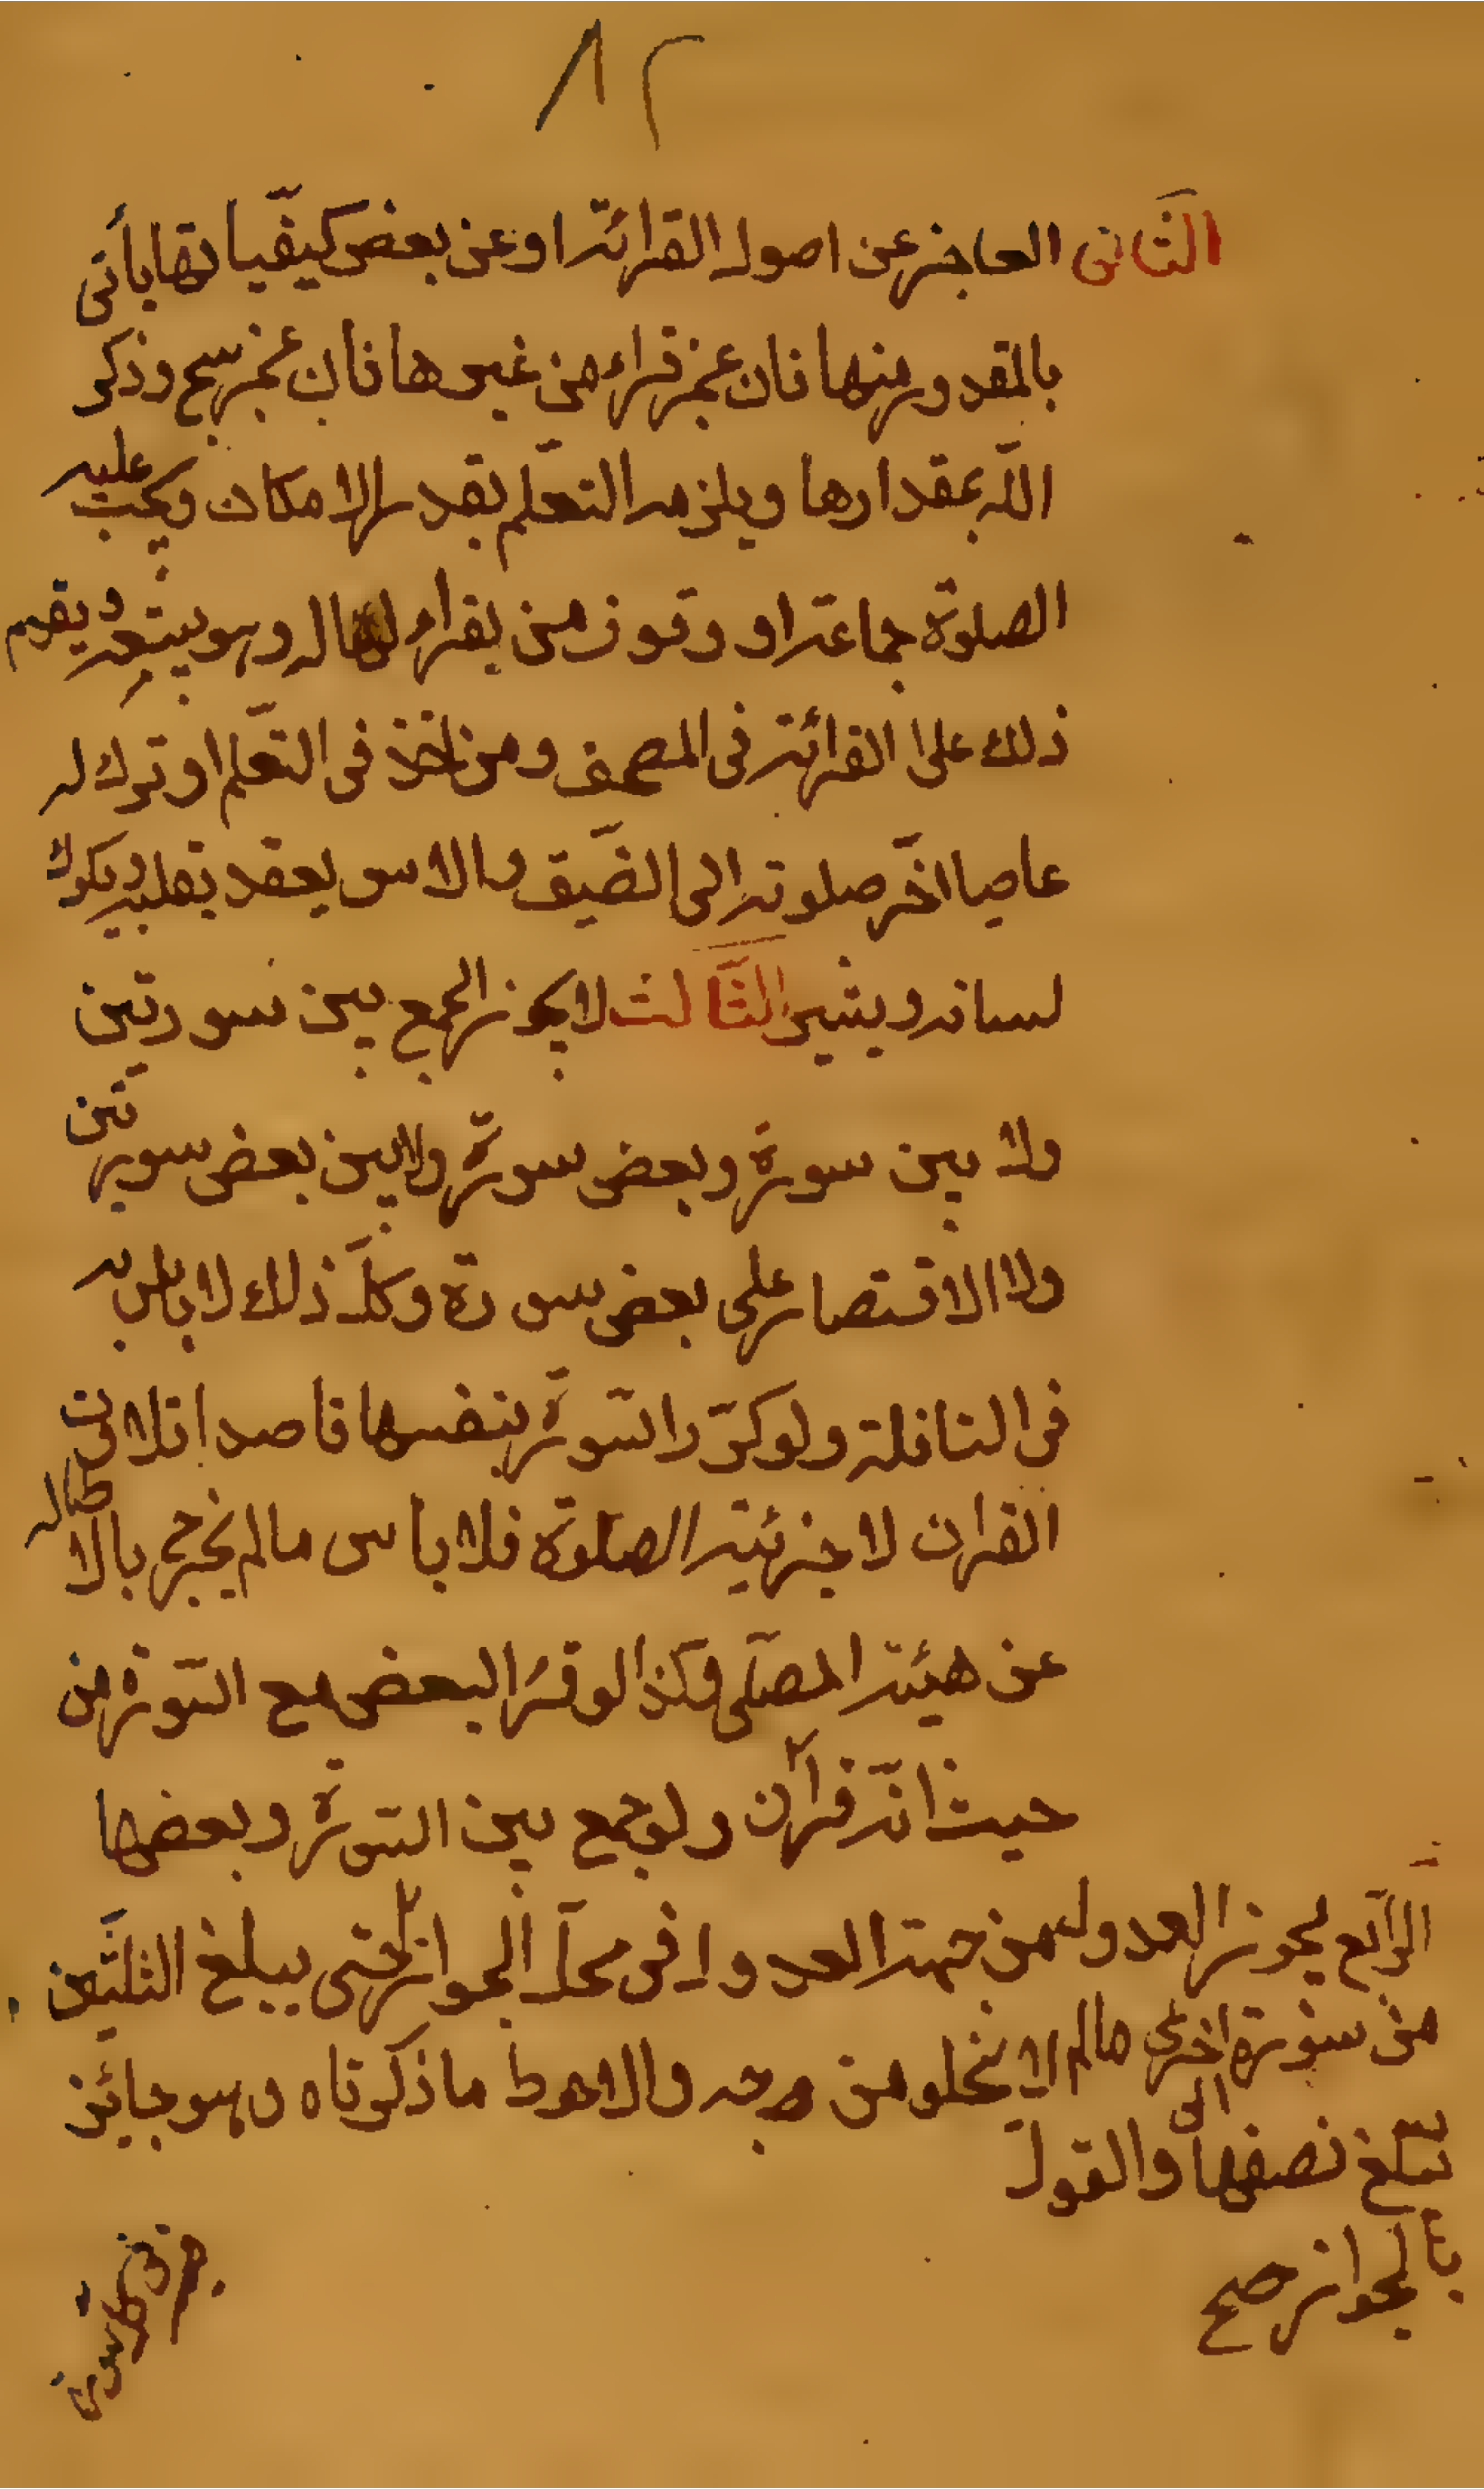 ٨٢
الثانى العاجز عن اصول القرائة او عن بعض كيفياتها يأتى
بالمقدور منها فان عجز قراء من غيرها فان عجز سبح وذكر
اللّه بمقدارها ويلزمه التعلّم بقدر الامكان ويجب عليه
الصلوة جماعة او وقوف من يقراء له وهو يتبعه ويقدم
ذلك على القرائة فى المصحف ومن اخذ فى التعلّم او ترك له
عاصيا اخّر صلوته الى الضيّق والاخرس يعقد بقلبه ويلوك
لسانه ويشير الثّالث لا يجوز الجمع بين سورتين
ولا بين سورة وبعض سورة ولا بين بعض سورتين
ولا الاقتصار على بعض سورة وكلّ ذلك لا باس به
فى النافلة ولو كرّر السّورة بنفسها قاصدا تلاوت
القران لا جزئية الصلوة فلا باس ما لم يخرج بالاطاله
عن هيئة المصلّى وكذا لو قرا البعض مع السّورة من
حيث انّه قرآن ولو جمع بين السّورة وبعضها
الرّابع يجوز العدول من جهة العدول فى محلّ الجواز حتى يبلغ الثلثين
من سورة اخرى مالم لا يخلو من وجه والاحوط ما ذكرناه وهو جائز
تبلغ نصفها الى والقول
بالجواز صح